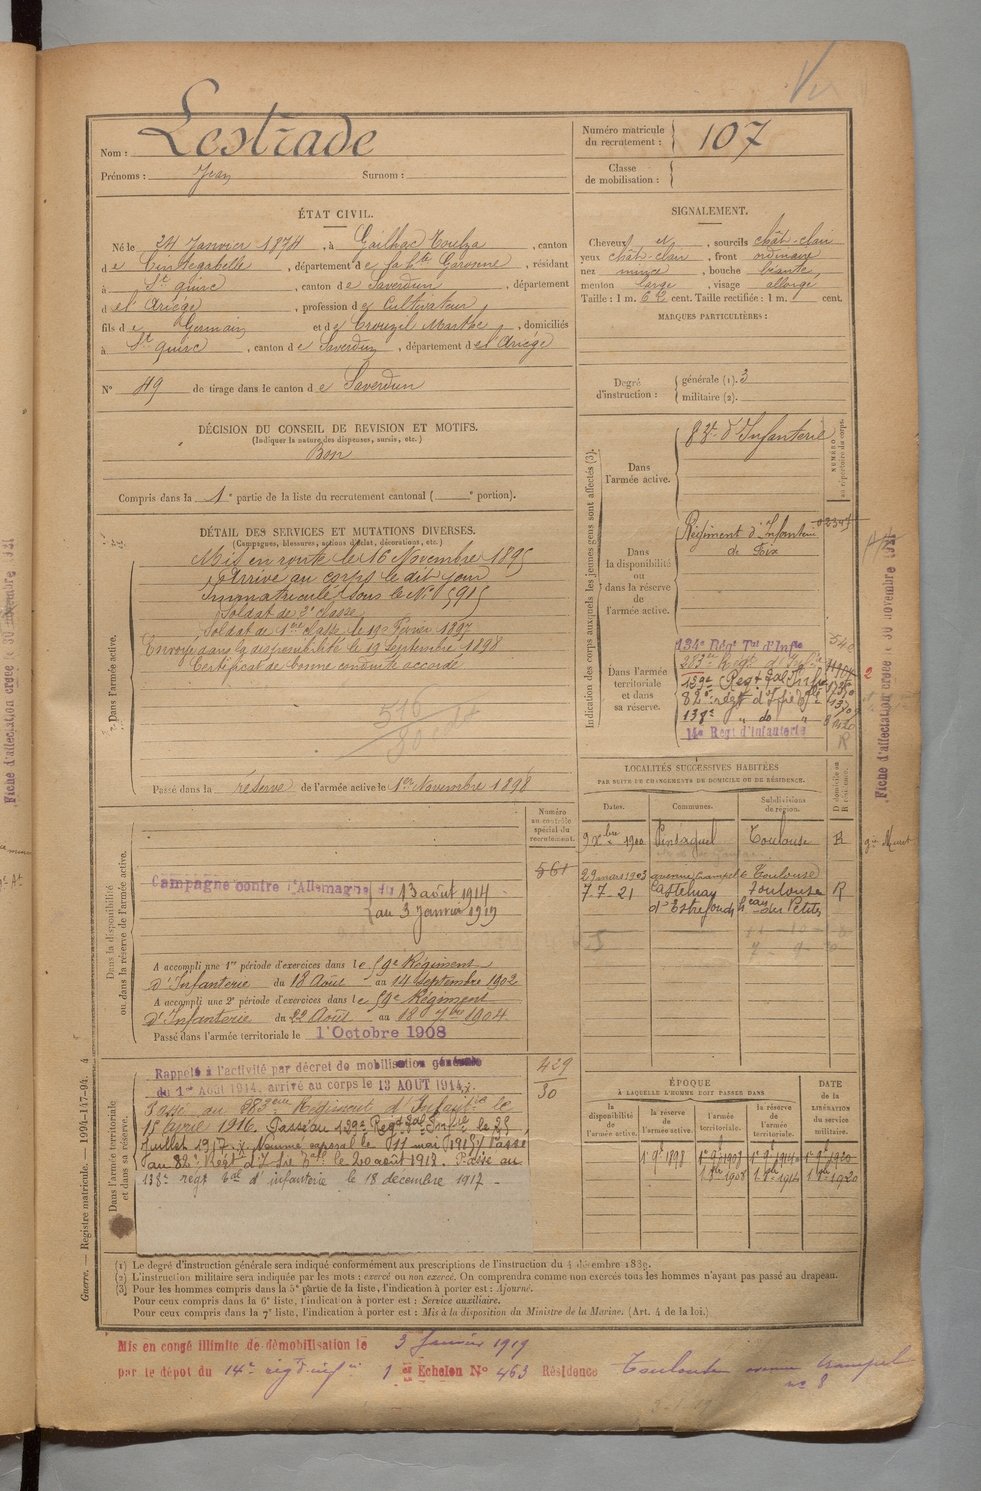 Nom : Lestrade
Prénoms : Jean Surnom :
Numéro matricule du recrutement : 107
Classe de mobilisation :
ÉTAT CIVIL.
Né le 24 Janvier 1874, à Gailhac Toulza, canton
de Cintegabelle, département de la Hte Garonne, résidant
à St Quirc, canton de Saverdun, département
de l'Ariège, profession de Cultivateur
fils de Germain et de Crouzil Marthe, domiciliés
à St Quirc, canton de Saverdun, département de l'Ariège
N° 49 de tirage dans le canton de Saverdun
SIGNALEMENT.
Cheveux et, sourcils chât-clair
yeux chât-clair, front ordinaire
nez mince, bouche béante,
menton large, visage allongé
Taille : 1 m. 62 cent. Taille rectifiée : 1 m. cent.
MARQUES PARTICULIÈRES :
Degré d'instruction : générale (1). 3
militaire (2).
DÉCISION DU CONSEIL DE REVISION ET MOTIFS.
(Indiquer la nature des dispenses, sursis, etc.)
Bon
Compris dans la 1e partie de la liste du recrutement cantonal ( e portion).
DÉTAIL DES SERVICES ET MUTATIONS DIVERSES.
(Campagnes, blessures, actions d'éclat, décorations, etc.)
Dans l'armée active.
Mis en route le 16 Novembre 1895
Arrivé au corps le dit jour
Immatriculé sous le N°
Soldat de 2e classe
Soldat de 1ere classe le 19 Février 1897
Envoyé dans la disponibilité le 19 septembre 1898
Certificat de bonne conduite accordé
Passé dans la réserve de l'armée active le 1er Novembre 1898
Indication des corps auxquels les jeunes gens sont affectés (3).
NUMÉRO au répertoire du corps.
Dans l'armée active.
d'Infanterie
Dans la disponibilité ou dans la réserve de l'armée active.
Régiment d'Infanterie
de Foix
Dans l'armée territoriale et dans sa réserve.
134e Régt Tal d'Infie
138e do
14e Régt d'Infanterie
LOCALITÉS SUCCESSIVES HABITÉES
PAR SUITE DE CHANGEMENTS DE DOMICILE OU DE RÉSIDENCE.
Dates. Communes. Subdivisions de région. D domicile ou R résidence.
9 Xbre 1900 Toulouse R
29 mars 1903 avenue Crampel 8 Toulouse
7-7-21 Castelnau Toulouse R
d'Estrefonds
Dans la disponibilité ou dans la réserve de l'armée active.
Numéro au contrôle spécial du recrutement.
561
Campagne contre l'Allemagne du 13 août 1914
au 3 Janvier 1919
A accompli une 1re période d'exercices dans le 59e Régiment
d'Infanterie du 18 Août au 14 septembre 1902
A accompli une 2e période d'exercices dans le 59e Régiment
d'Infanterie du 22 Août au 18 7bre 1904
Passé dans l'armée territoriale le 1 Octobre 1908
Dans l'armée territoriale et dans sa réserve.
Rappelé à l'activité par décret de mobilisation générale
du 1er Août 1914, arrivé au corps le 13 AOUT 1914.
Passé au 283eme Régiment d'Infanterie le
15 Avril 1916. Passé au 129e Régt Tal Infie le 25
Juillet 1917. Nommé caporal le 11 mai 1915. Passé
au 82e Régt d'Infie Tale le 20 août 1918. Passé au
138e régt tal d'infanterie le 18 décembre 1917
429
30
ÉPOQUE
À LAQUELLE L'HOMME DOIT PASSER DANS
la disponibilité de l'armée active. la réserve de l'armée active. l'armée territoriale. la réserve de l'armée territoriale.
DATE DE LA LIBÉRATION du service militaire.
1er 9e 1898 1er 9e 1908 1er 9e 1914 1er 9e 1920
1er 8bre 1908 1er 8bre 1914 1er 8bre 1920
Guerre. — Registre matricule. — 1994-147-94. 4.
(1) Le degré d'instruction générale sera indiqué conformément aux prescriptions de l'instruction du 4 décembre 1889.
(2) L'instruction militaire sera indiquée par les mots : exercé ou non exercé. On comprendra comme non exercés tous les hommes n'ayant pas passé au drapeau.
(3) Pour les hommes compris dans la 5e partie de la liste, l'indication à porter est : Ajourné.
Pour ceux compris dans la 6e liste, l'indication à porter est : Service auxiliaire.
Pour ceux compris dans la 7e liste, l'indication à porter est : Mis à la disposition du Ministre de la Marine. (Art. 4 de la loi.)
Mis en congé illimité de démobilisation le 3 Janvier 1919
par le dépôt du 14e rég d'infie 1er Echelon N° 463 Résidence Toulouse avenue Crampel
n° 8
Fiche d'affectation créée le 30 novembre 1921